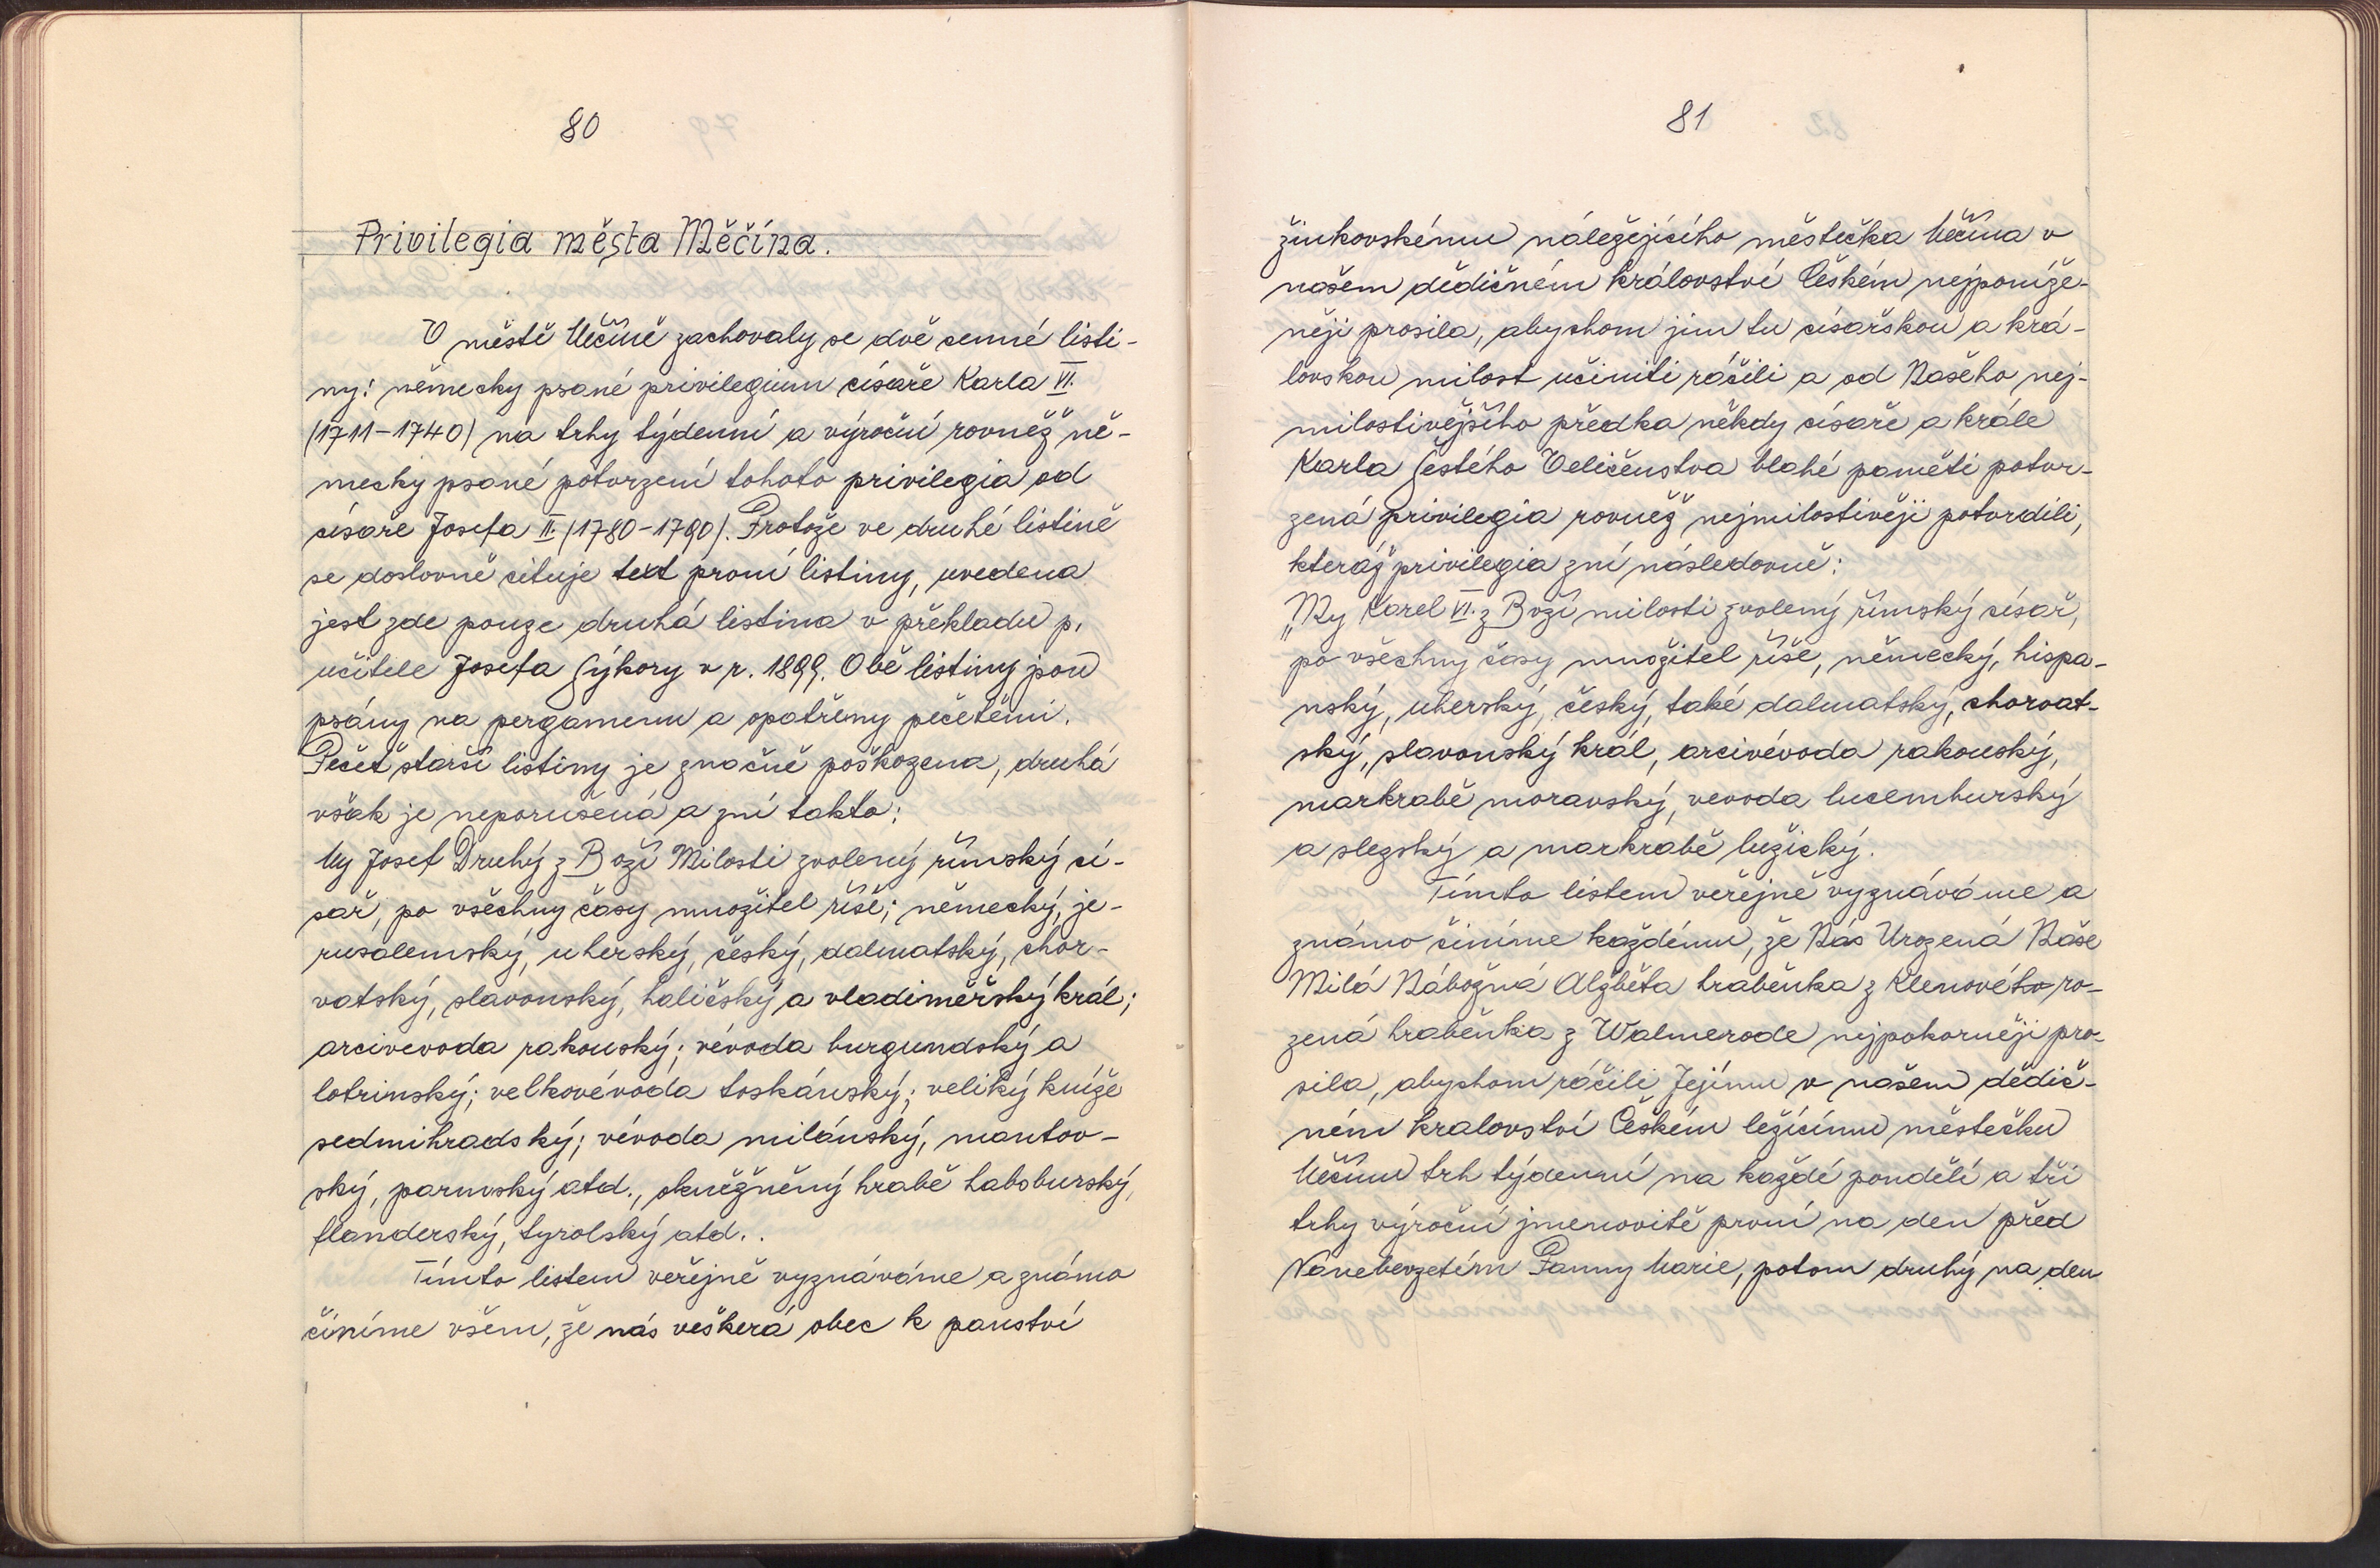 80
Privilegia města Měčína.
V městě Měčíně zachovaly se dvě cenné listi-
ny: německy psané privilegium císaře Karla VI.
(1711-1740) na trhy týdenní a výroční rovněž ně-
mecky psané potvrzení tohoto privilegia od
císaře Josefa II. (1780-1790). Protože ve druhé listině
se doslovně cituje text první listiny, uvedena
jest zde pouze druhá listina v překladu p.
učitele Josefa Sýkory v r. 1899. Obě listiny jsou
psány na pergamenu a opatřeny pečetěmi.
Pečeť starší listiny je značně poškozena, druhá
však je neporušená a zní takto:
My Josef Druhý z Boží Milosti zvolený římský cí-
sař, po všechny časy množitel říše; německý, je-
rusalemský, uherský, český, dalmatský, chor-
vatský, slavonský, haličský a vladiměřský král;
arcivevoda rakouský; vévoda burgundský a
lotrinský; velkovévoda toskánský; veliký kníže
sedmihradský; vévoda milánský, mantov-
ský, parmský atd., okněžněný hrabě habsburský,
flanderský, tyrolský atd..
Tímto listem veřejně vyznáváme a známo
číníme všem, že nás veškerá obec k panství
81
žinkovskému náležejícího městečka Měčína v
našem dědičném království Českém nejponíže-
něji prosila, abychom jim tu císařskou a krá-
lovskou milost učiniti ráčili a od Našeho nej-
milostivějšího předka někdy císaře a krále
Karla Šestého Veličenstva blahé paměti potvr-
zená privilegia rovněž nejmilostivěji potvrdili,
kteráž privilegia zní následovně:
„My Karel VI. z Boží milosti zvolený římský císař,
po všechny časy množitel říše, německý, hispa-
nský, uherský, český, také dalmatský, chorvat-
ský, slavonský král, arcivévoda rakouský,
markrabě moravský, vevoda lucemburský
a slezský a markrabě lužický.
Tímto listem veřejně vyznáváme a
známo činíme každému, že Nás Urozená Naše
Milá Nábožná Alžběta hraběnka z Klenového ro-
zená hraběnka z Walmerode nejpokorněji pro-
sila, abychom ráčili Jejímu v našem dědič-
ném kralovství Českém ležícímu městečku
Měčínu trh týdenní na každé pondělí a tři
trhy výroční jmenovitě první na den před
Nanebevzetím Panny Marie, potom druhý na den